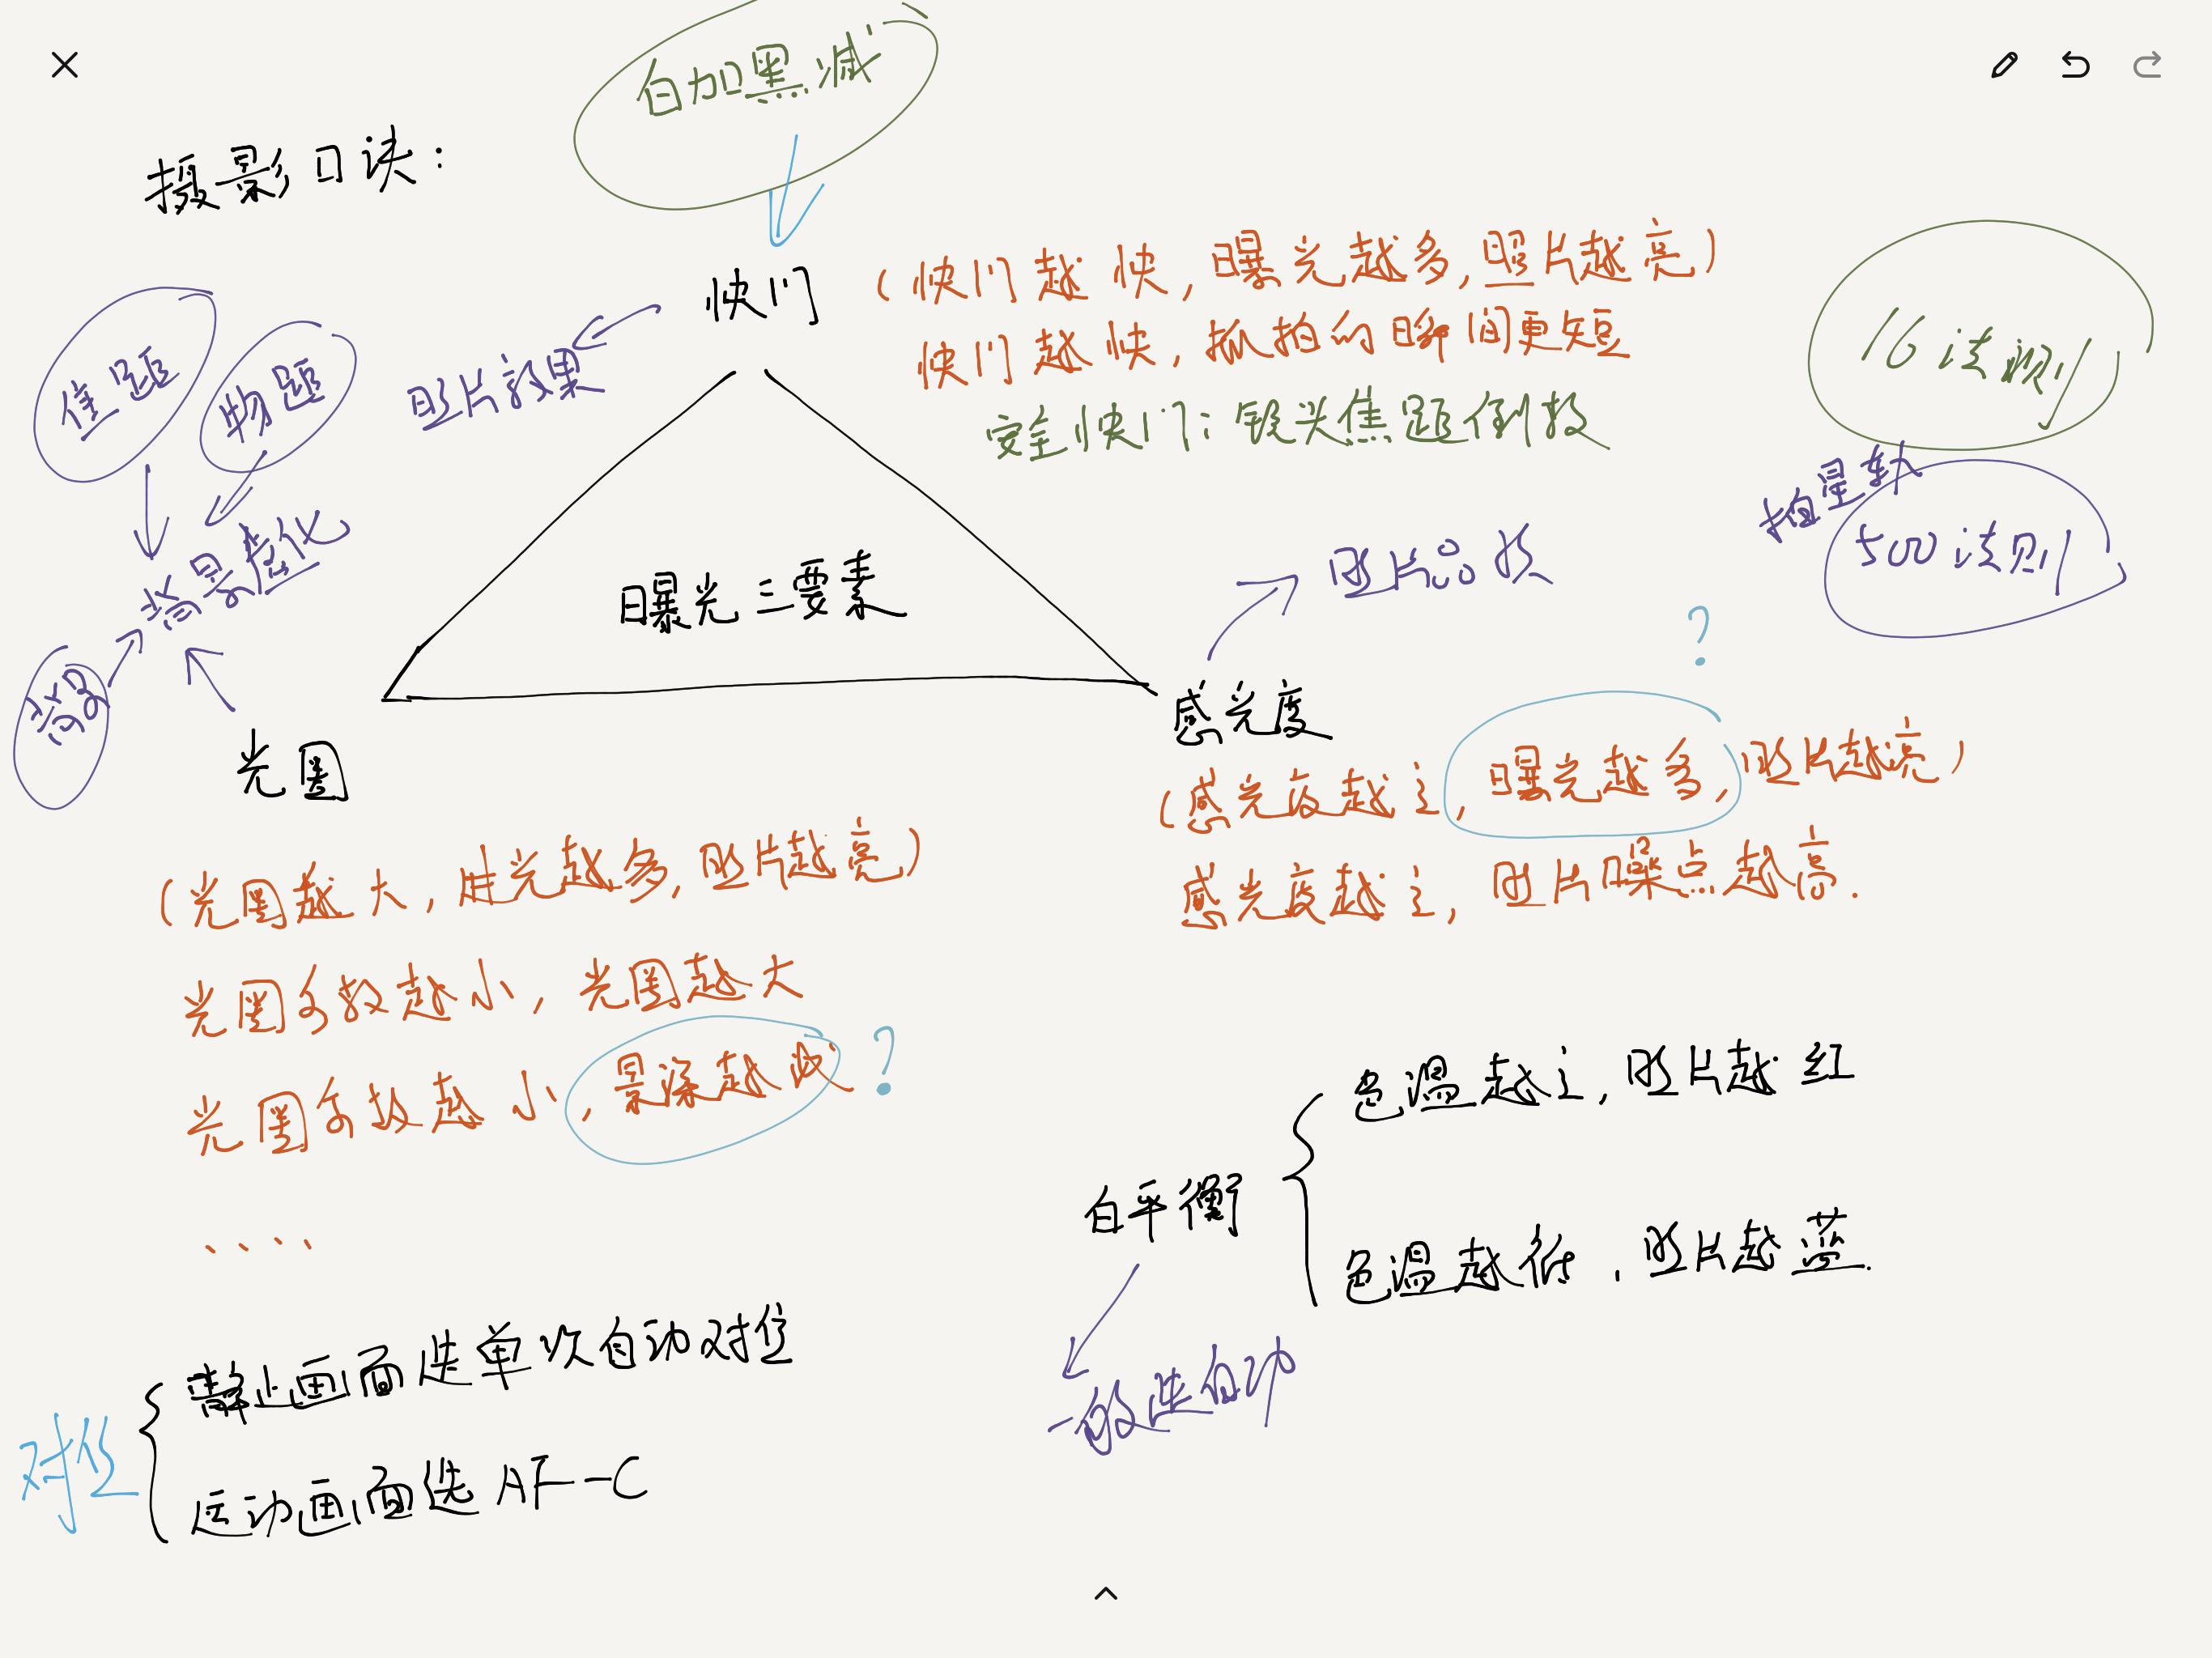 白加黑减
摄影口诀：
快门
（快门越快，曝光越多，照片越亮）
快门越快，抓拍的瞬间更短
安全快门：镜头焦距倒数
16法则
拍星轨
500法则
照片效果
焦距
物距
背景虚化
曝光三要素
照片品质
?
感光度
（感光度越高，曝光越多，照片越亮）
感光度越高，照片噪点越高.
光圈
（光圈越大，进光越多，照片越亮）
光圈系数越小，光圈越大
光圈系数越小，景深越浅
?
、、、、
白平衡
色温越高，照片越红
色温越低，照片越蓝.
一般选自动
对焦
静止画面选单次自动对焦
运动画面选AF-C